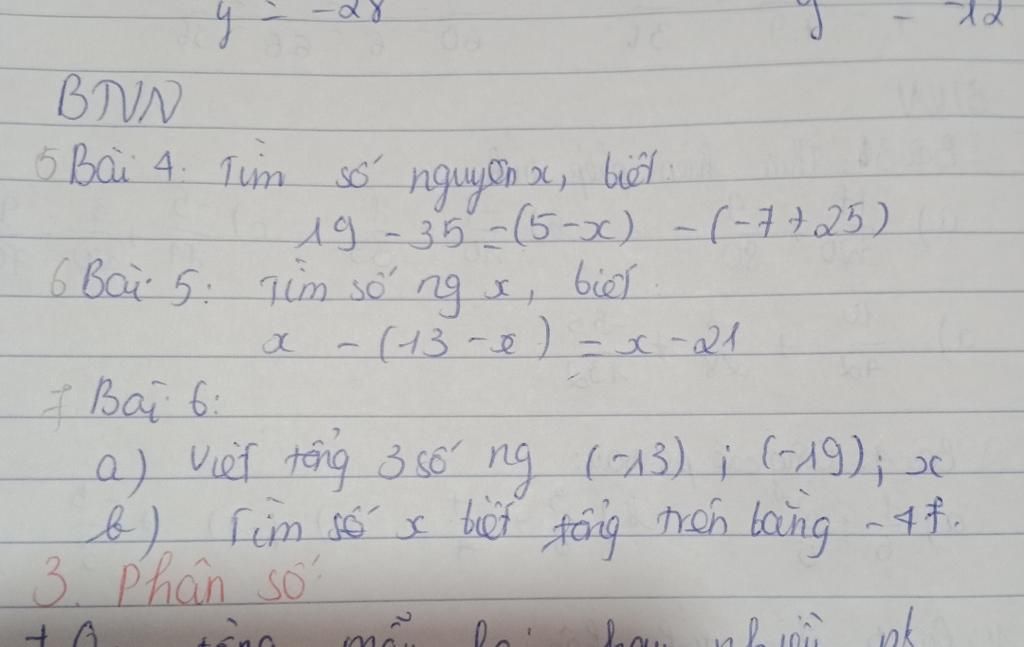 y = -28
y = -12
BTVN
5 Bài 4: Tìm số nguyên x, biết
19 - 35 = (5-x) - (-7+25)
6 Bài 5: Tìm số ng x, biết
x - (13 - x) = x - 21
7 Bài 6:
a) Viết tổng 3 số ng (-13) ; (-19) ; x
b) Tìm số x biết tổng trên bằng -47.
3. Phân số